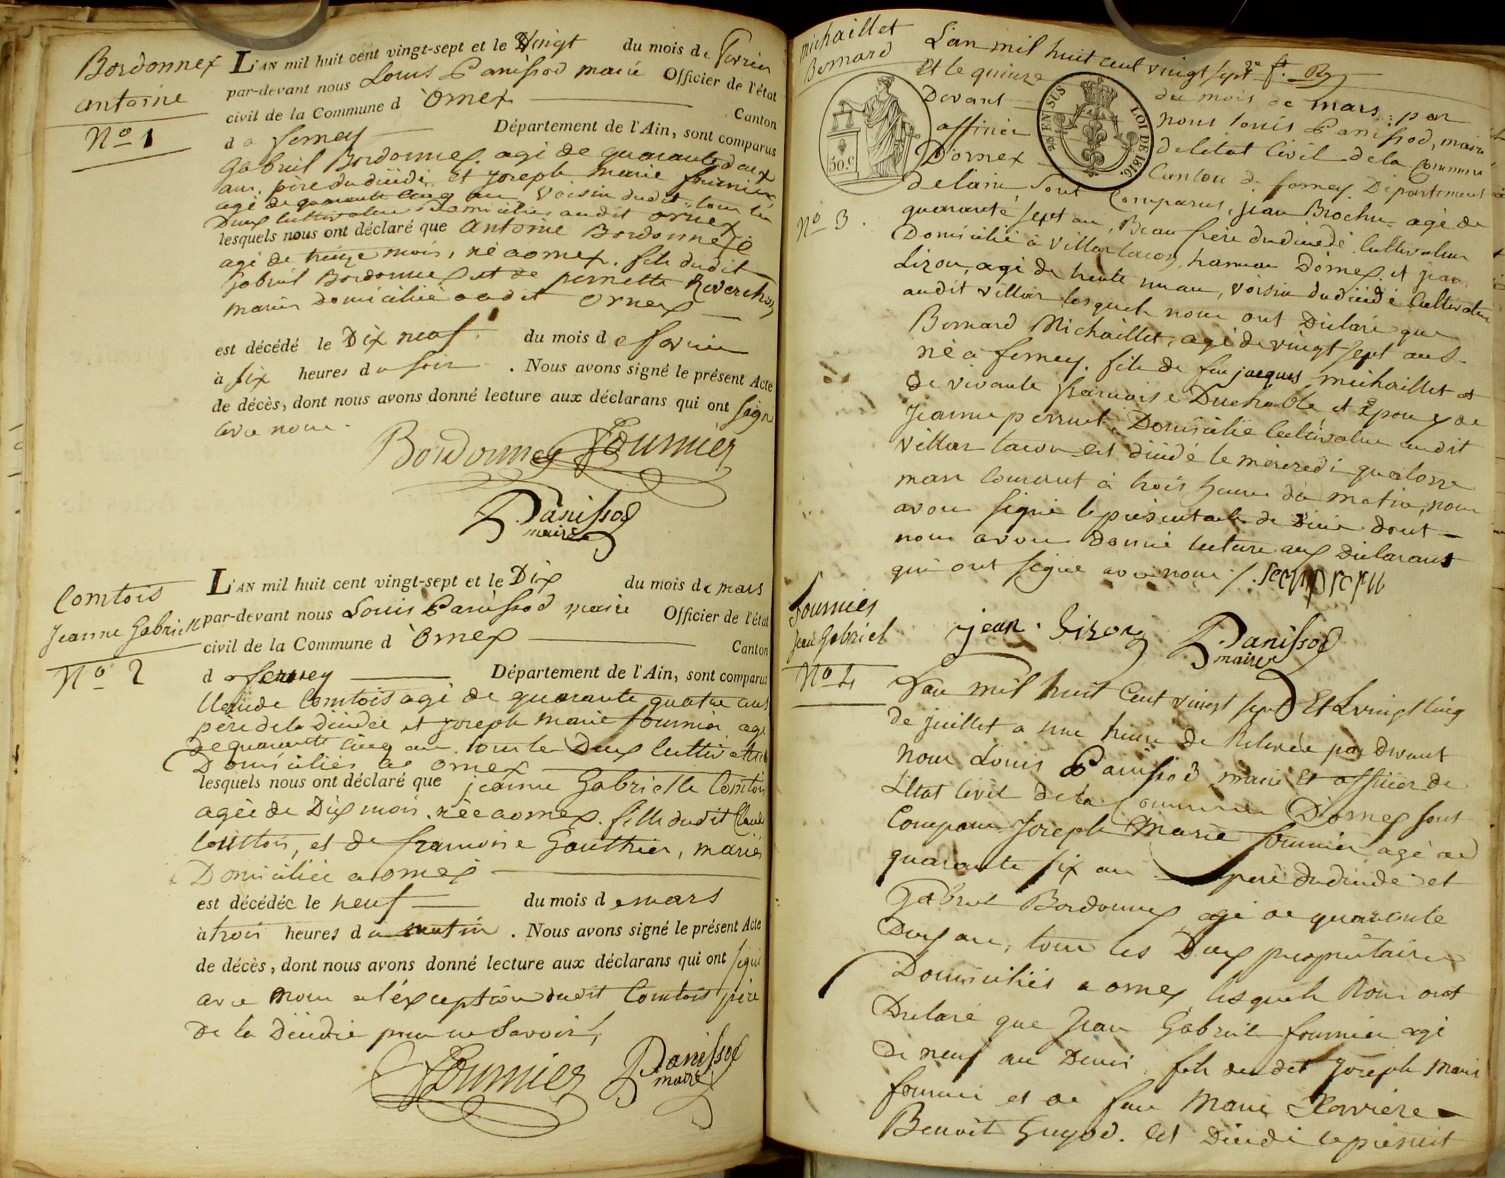 Bordonnex
antoine
No 1
L'AN mil huit cent vingt-sept et le Vingt du mois de fevrier
par-devant nous Louis Panissod maire Officier de l'état
civil de la Commune d'Ornex Canton
de ferney Département de l'Ain, sont comparus
Gabriel Bordonnex agé de quarante deux
ans, père dudécédé et joseph marie fournier
agé de quarante cinq ans voisin dudit, tous les
Deux cultivateurs Domiciliés audit ornex
lesquels nous ont déclaré que antoine Bordonnex
agé de treize mois, né a ornex, fils dudit
Gabriel Bordonnex et de pernette Reverchon
mariés domiciliés audit Ornex
est décédé le Dix neuf du mois de fevrier
à six heures du soir. Nous avons signé le présent Acte
de décès, dont nous avons donné lecture aux déclarans qui ont signé
avec nous.
Bordonnex fournier
Panissod
maire
Comtois
Jeanne Gabrielle
No 2
L'AN mil huit cent vingt-sept et le Dix du mois de mars
par-devant nous Louis Panissod maire Officier de l'état
civil de la Commune d'Ornex Canton
de ferney Département de l'Ain, sont comparus
Claude Comtois agé de quarante quatre ans
père de la Décédée et joseph marie fournier agé
de quarante cinq ans tous les Deux cultivateurs
Domiciliés a ornex
lesquels nous ont déclaré que jeanne Gabrielle Comtois
agée de Dix mois, née a ornex, fille dudit Claude
Comtois, et de francoise Gauthier, mariés
Domiciliés a ornex
est décédée le neuf du mois de mars
à trois heures du matin. Nous avons signé le présent Acte
de décès, dont nous avons donné lecture aux déclarans qui ont signé
avec nous a l'éxception dudit Comtois père
de la Décédée pour ne savoir
fournier Panissod
maire
michaillet
Bernard
No 3.
L'an mil huit cent vingt sept
Et le quinze du mois de mars, par
Devant nous louis Panissod, maire
officier de l'état Civil de la Commune
D'ornex Canton de ferney Département
de l'ain sont Comparus, jean Brochu agé de
quarante sept ans, Beau frère dudécédé Cultivateur
Domicilié a villar tacon, hameau D'ornex, et jean
Lizon, agé de trente un an, voisin dudécédé Cultivateur
audit villar lesquels nous ont Déclaré que
Bernard Michaillet, agé de vingt sept ans
né a ferney, fils de feu jacques michaillet et
de vivante francoise Duchable et Epoux de
Jeanne perrut Domicilié Cultivateur audit
villar tacon est décédé le mercredi quatorze
mars courant à trois heures du matin, nous
avons signé le présent acte de Décès dont
nous avons donné lecture aux Déclarants
qui ont signé avec nous
jean Lizon Panissod
maire
50 c.
LOI DE 1816
fournier
Jean Gabriel
No 4
L'an mil huit Cent vingt sept Et Le vingt cinq
de juillet a une heure de Relevée par Devant
Nous Louis Panissod maire et officier de
L'état Civil de la Commune D'ornex sont
Comparus Joseph Marie fournier agé de
quarante six ans père du décédé et
Gabriel Bordonnex agé de quarante
Deux ans, tous les Deux propriétaires
Domiciliés a ornex, lesquels Nous ont
Déclaré que Jean Gabriel fournier agé
De neuf ans Demi, fils du dit Joseph Marie
fournier et de feue Marie Xavriere
Benoit Guyod. Est Décédé le présent